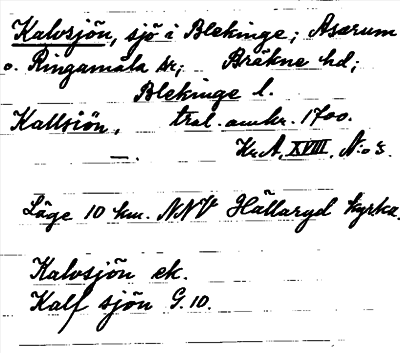 Kalvsjön, sjö i Blekinge; Asarum
o. Ringamåla sr; Bräkne hd;
Blekinge l.
Kallsiön, tral. omkr. 1700.
—. Kr.A, XVIII, N:o 3.
Läge 10 km. NNV Hällaryd kyrka.
Kalvsjön ek.
Kalf sjön G.10.